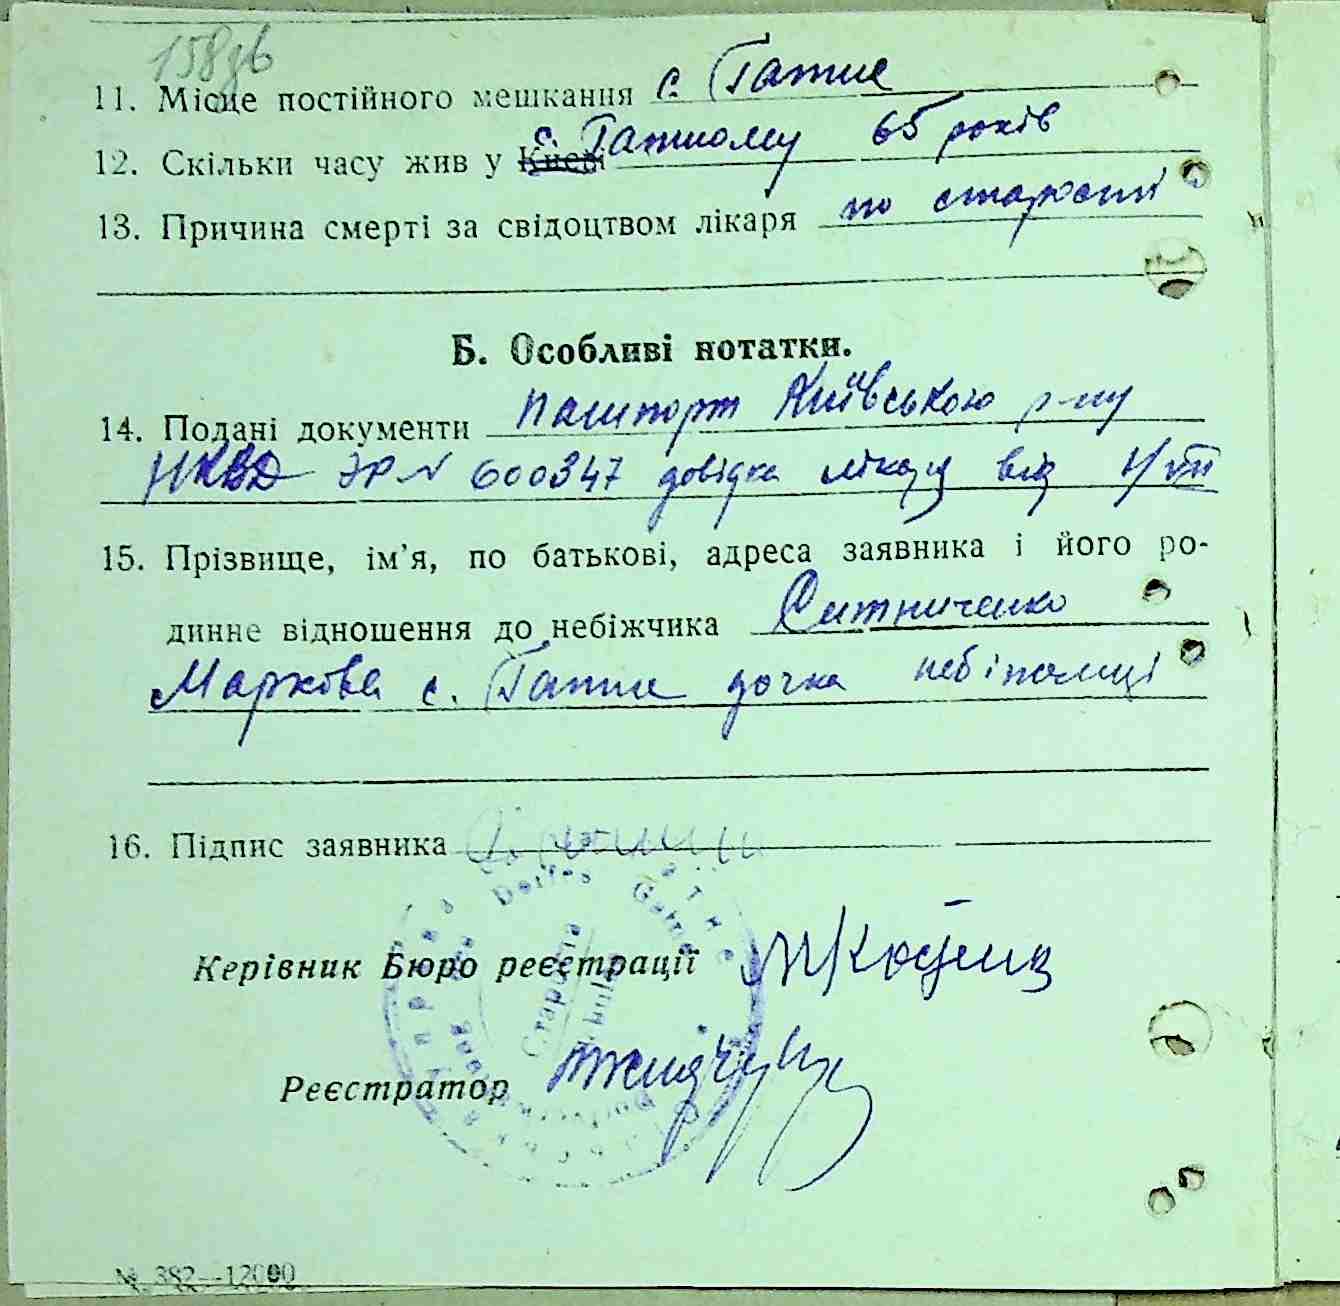 158зв
11. Місце постійного мешкання с. Гатне
12. Скільки часу жив у Києві с. Гатному 65 років
13. Причина смерті за свідоцтвом лікаря по старості
Б. Особливі нотатки.
14. Подані документи пашпорт Київського р-ну
НКВД ЭР № 600347 довідка лікаря від 4/VII
15. Прізвище, ім'я, по батькові, адреса заявника і його ро-
динне відношення до небіжчика Ситниченко
Маркова с. Гатне дочка
16. Підпис заявника
Керівник Бюро реєстрації
Реєстратор
Dorfes Gatne
Староста
М. 382—12000